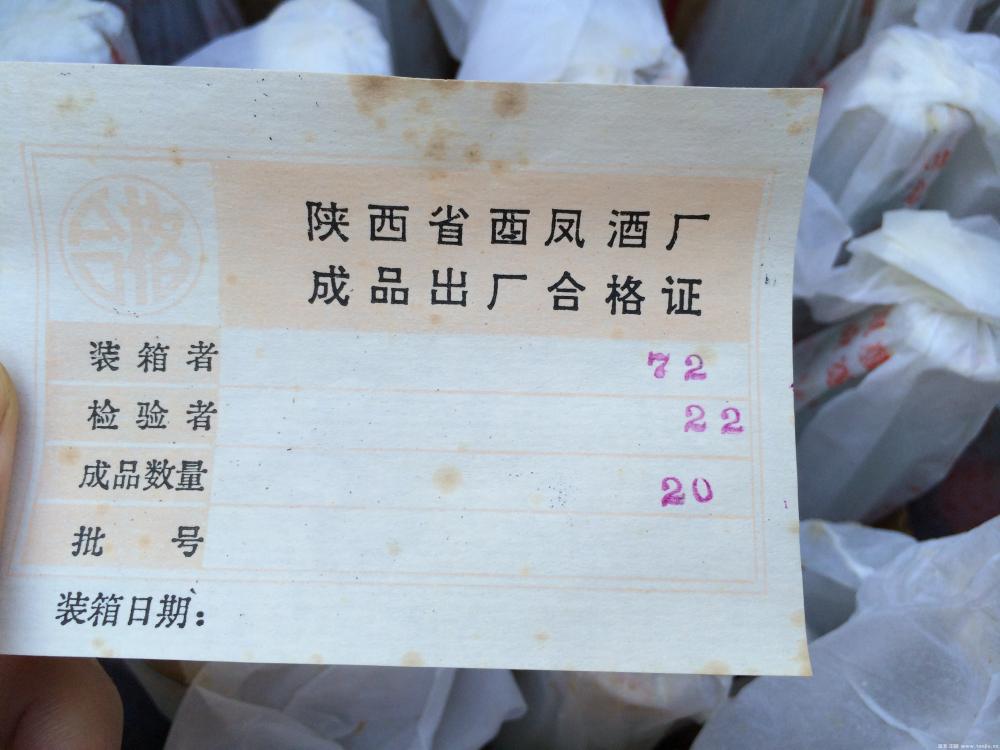 合格
陕西省西凤酒厂
成品出厂合格证
装箱者 72
检验者 22
成品数量 20
批号
装箱日期: